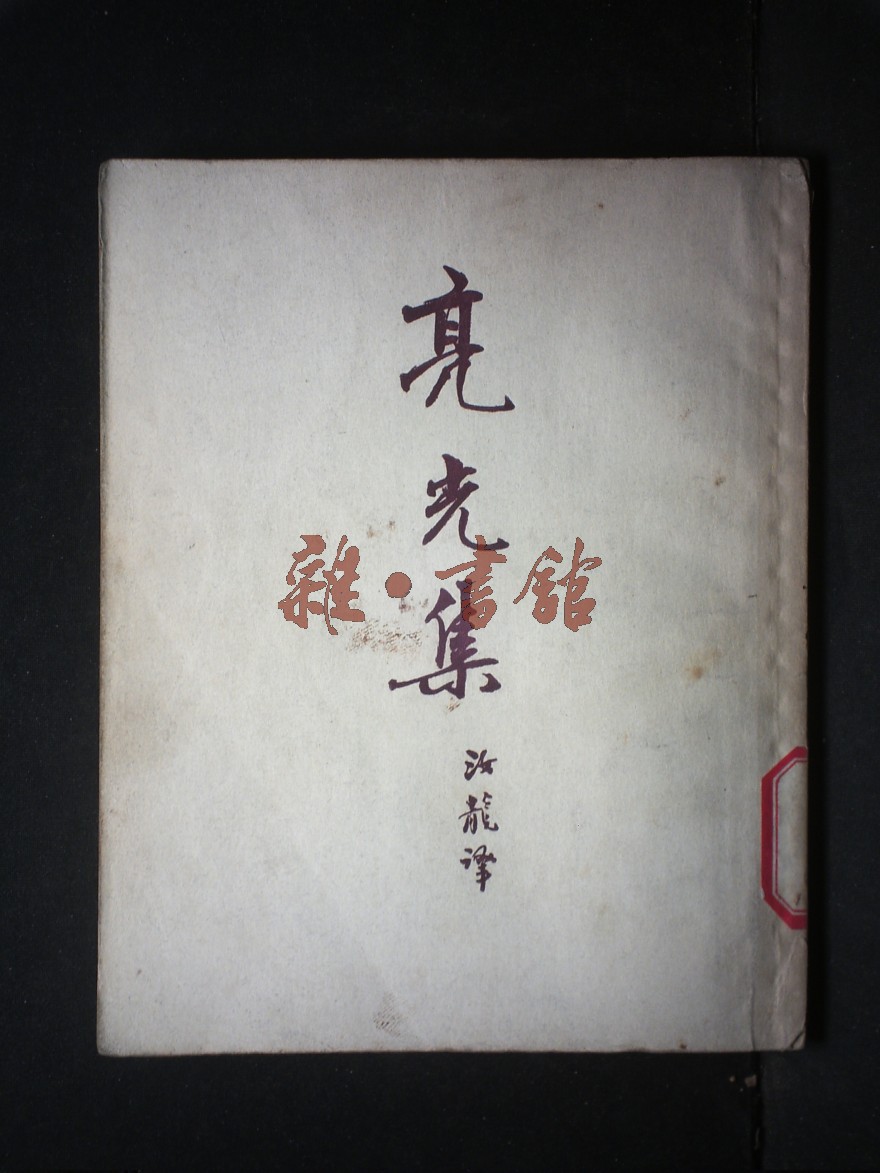 亮光集
雜·書館
汝龍譯